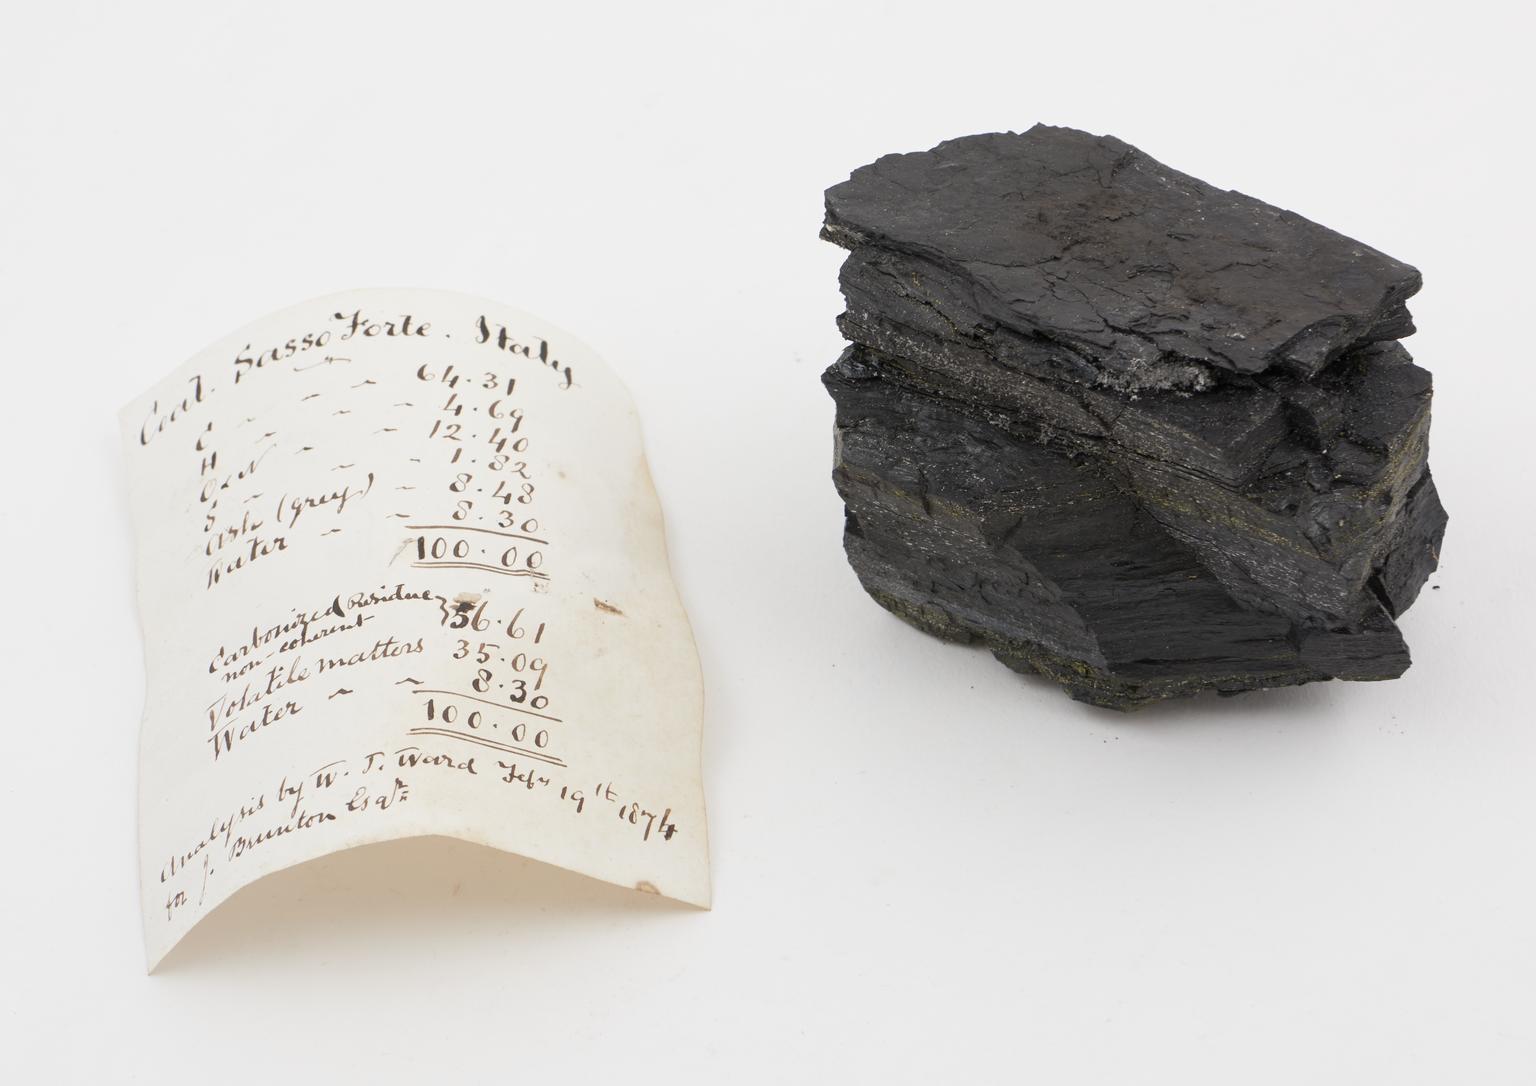 Coal. Sasso Forte. Italy
C 64.31
H 4.69
O & N 12.40
S 1.82
Ash (grey) 8.48
Water 8.30
100.00
Carbonized Residue } 56.61
non-coherent
Volatile matters 35.09
Water 8.30
100.00
Analysis by W. T. Ward Feby 19th 1874
for J. Brunton Esqr